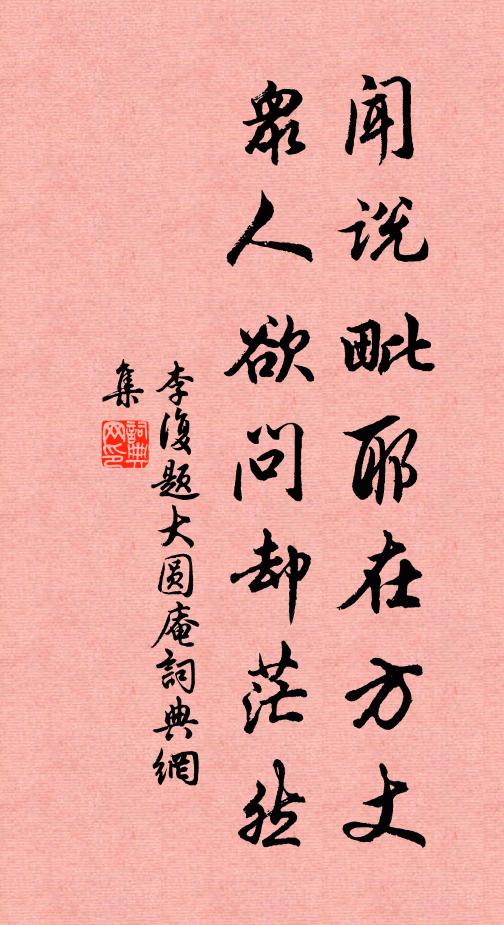 闻说毗耶在方丈
众人欲问却茫然
李復题大圆庵詞典網
集
詞典网印